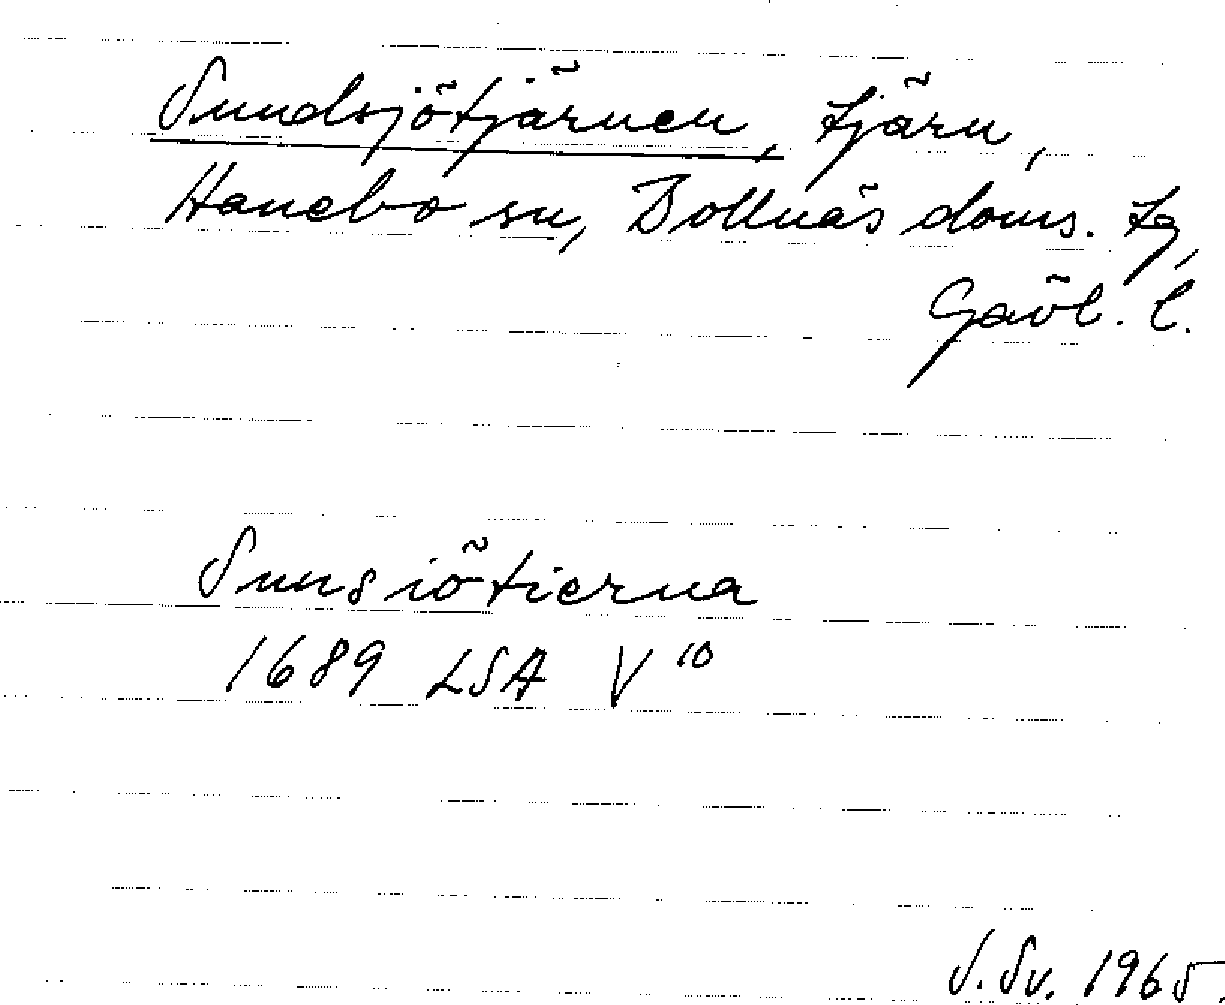 Sundsjötjärnen, tjärn,
Hanebo sn, Bollnäs doms. tg,
Gävl. l.
Sunsiötierna
1689 LSA V 10
S. Sv. 1965.